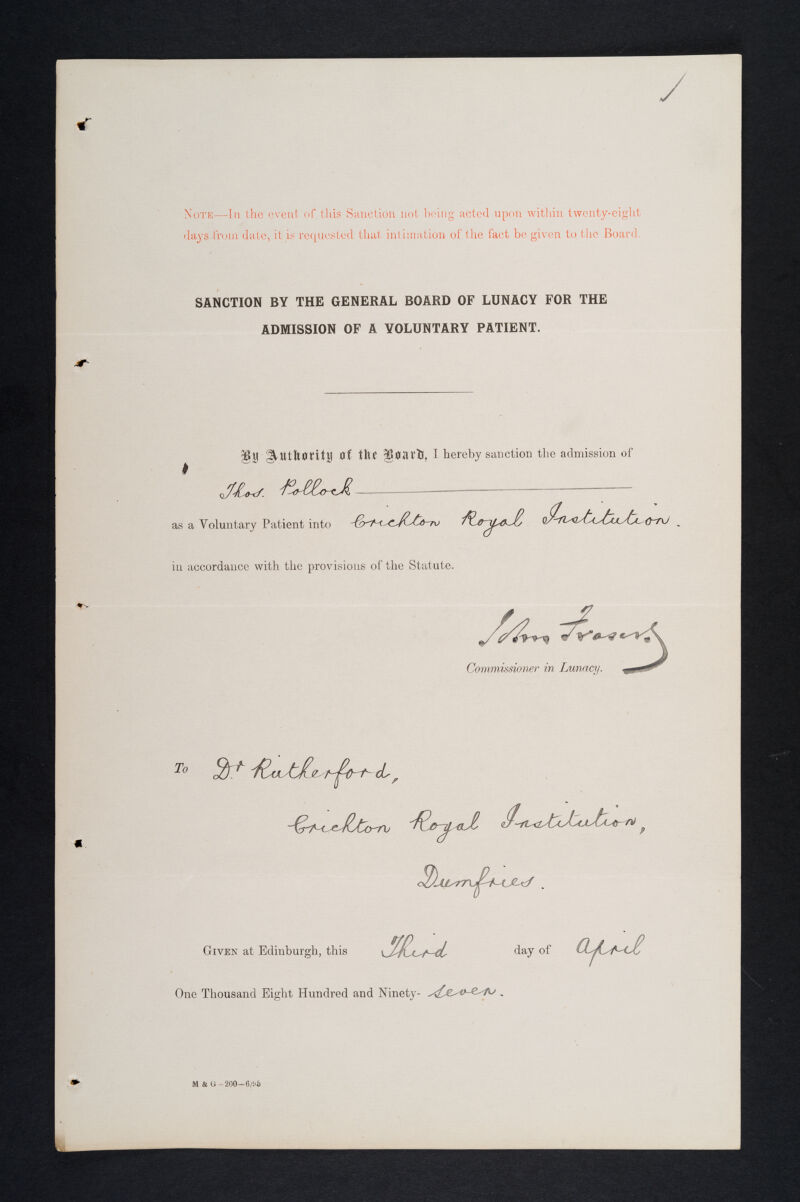 1
NOTE—In the event of this Sanction not being acted upon within twenty-eight
days from date, it is requested that intimation of the fact be given to the Board.
SANCTION BY THE GENERAL BOARD OF LUNACY FOR THE
ADMISSION OF A VOLUNTARY PATIENT.
By Authority of the Board, I hereby sanction the admission of
Thos. Pollock
as a Voluntary Patient into Crichton Royal Institution.
in accordance with the provisions of the Statute.
John Fraser
Commissioner in Lunacy.
To Dr Rutherford,
Crichton Royal Institution,
Dumfries.
GIVEN at Edinburgh, this Third day of April
One Thousand Eight Hundred and Ninety- seven.
M & G - 200—6/95